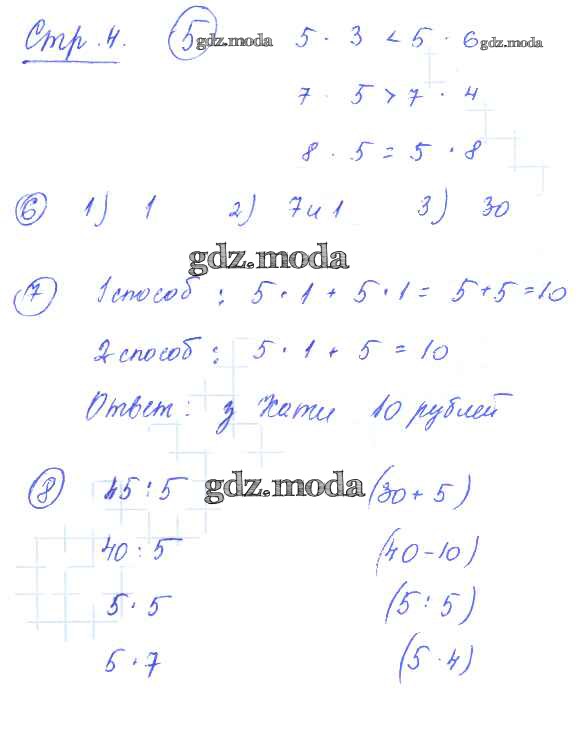 Стр. 4. 5 gdz.moda 5 · 3 < 5 · 6 gdz.moda
7 · 5 > 7 · 4
8 · 5 = 5 · 8
6 1) 1 2) 7 и 1 3) 30
gdz.moda
7 1 способ: 5 · 1 + 5 · 1 = 5 + 5 = 10
2 способ: 5 · 1 + 5 = 10
Ответ: у Кати 10 рублей
8 45 : 5 gdz.moda (30 + 5)
40 : 5 (40 - 10)
5 · 5 (5 : 5)
5 · 7 (5 · 4)